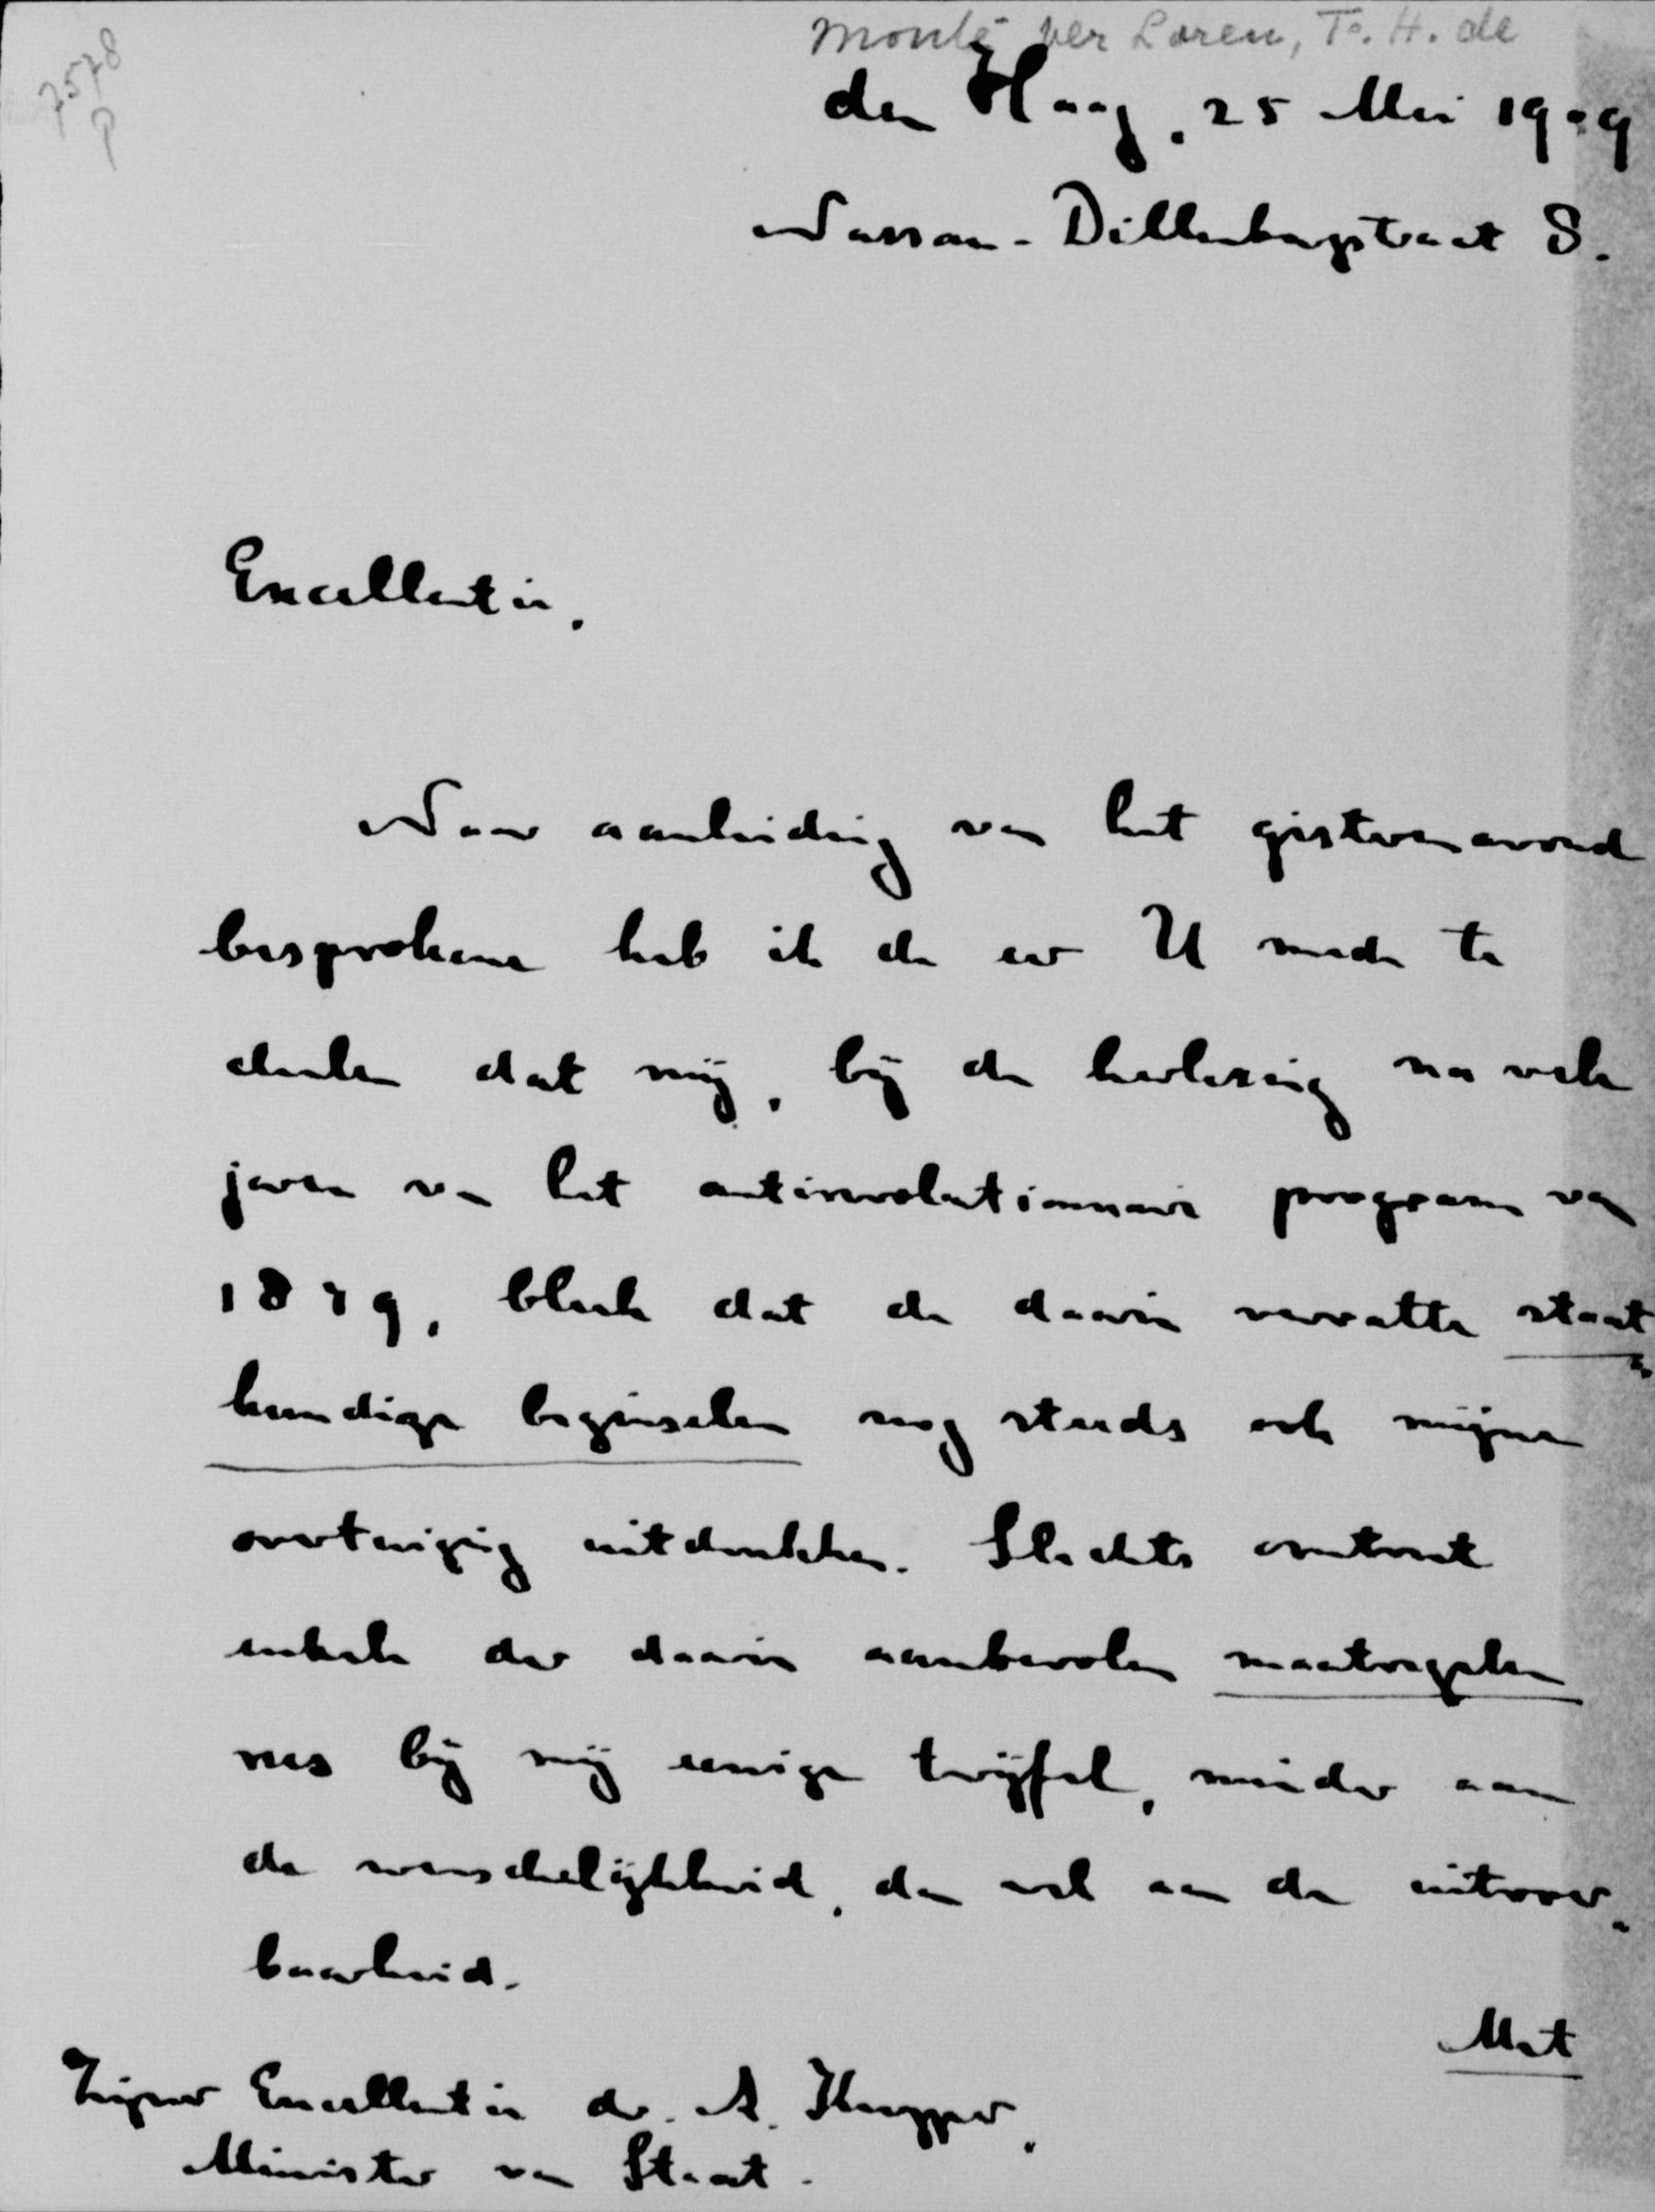 7578
P
Monté ver Loren, Th. H. de
den Haag, 25 Mei 1909
Nassau-Dillenburgstraat 8.
Excellentie,
Naar aanleiding van het gisterenavond
besprokene heb ik de eer U mede te
deelen dat mij, bij de herlezing na vele
jaren van het antirevolutionnaire program van
1879, bleek dat de daarin vervatte staat
kundige beginselen nog steeds ook mijne
overtuiging uitdrukken. Slechts omtrent
enkele der daarin aanbevolen maatregelen
rees bij mij eenige twijfel, minder aan
de wenschelijkheid, dan wel aan de uitvoer
baarheid.
Met
Zijner Excellentie dr. A. Kuyper,
Minister van Staat.